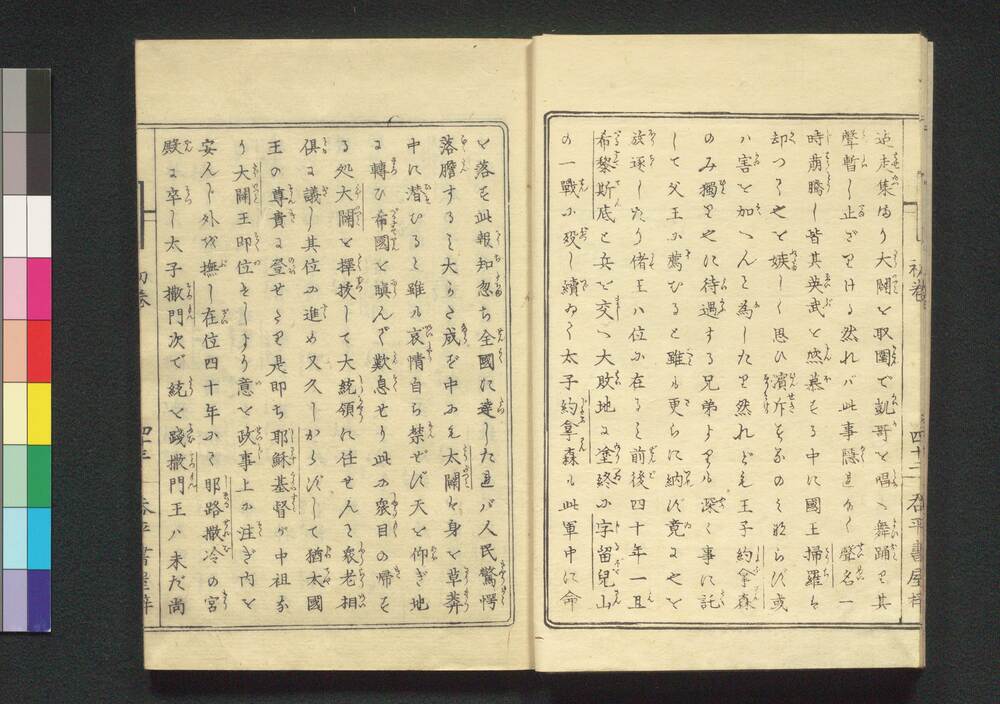 迯走集り大闢を取圍で凱哥を唱へ舞踊を其
聲暫し止ざりける然れバ此事隠れなく聲名一
時痈騰し皆其英武を悠慕する中に國王掃羅ハ
却つて之を嫉しく思ひ濱斥するのみならず或
ハ害を加へんと為したり然れども王子約拿森
のみ獨り之に待過する兄弟よりも深く事に託
して父王に薦むると雖ル更らに納ず竟に之を
放逐したり偖王ハ位に在るを前後四十年一旦
希黎斯底と兵を交へ大敗地に塗終に字留兒山
の一戰に殁し續ゐて太子約拿森ル此軍中に命
を落す此報知忽ち全國に達したれバ人民驚愕
落膽する大らさ成ず中にも太闢ハ身を草莽
中に潜むると雖ル哀情自ら禁ぜず天を仰ぎ地
に轉び希國を瞋んで歎息せり此に衆目の帰する
処大闢を擇拔して大統領に任せんと衆老相
倶に議し其位に進め又久しからずして猶太國
王の尊貴に登せたり是即ち耶穌基督が中祖な
り大闢王即位せしより意を政事上に注ぎ内を
安んじ外を撫し在位四十年にて耶路撒冷の宮
殿に卒し太子撒門次で統を踐撒門王ハ未だ尚
初卷
四十二
初卷
四十三